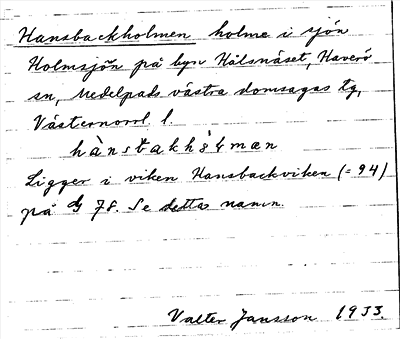 Hansbackholmen holme i sjön
Holmsjön på byn Hålsnäset, Haverö
sn, Medelpads västra domsagas tg,
Västernorrl l.
hànstakhòlmæn
Ligger i viken Hansbackviken (= 94)
på 78. Se dettas namn.
Valter Jansson 1933.